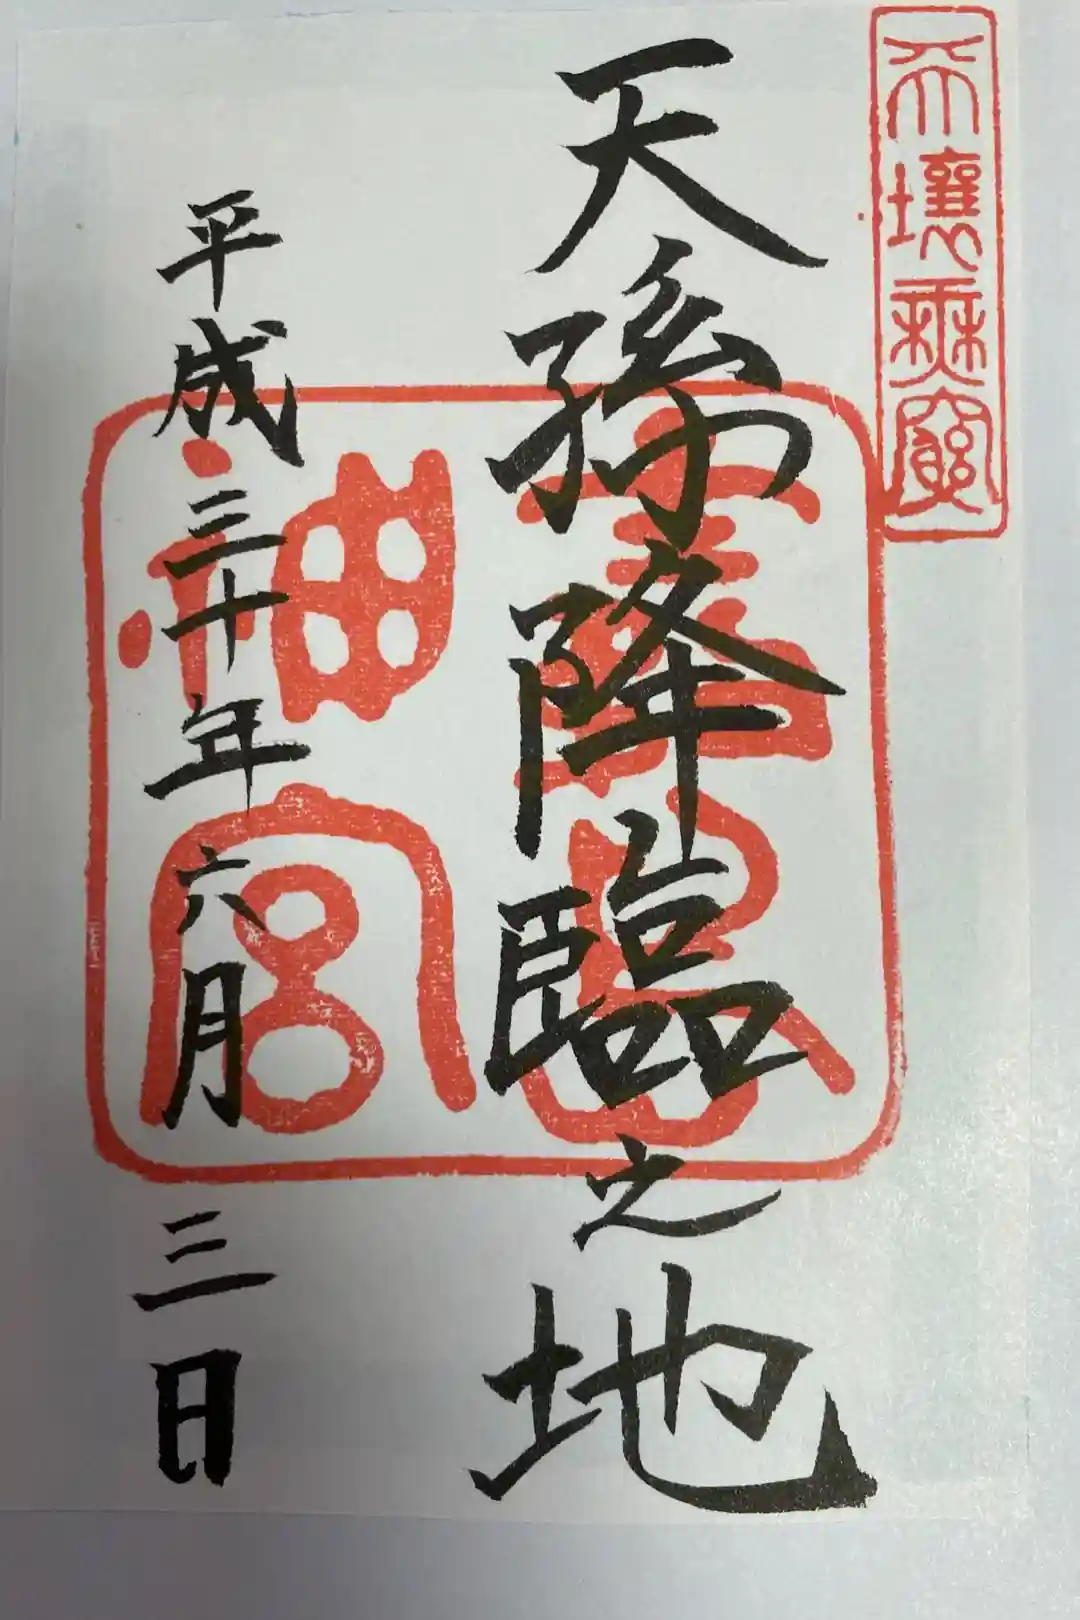 天壤無窮
天孫降臨之地
神宮
平成三十年六月三日